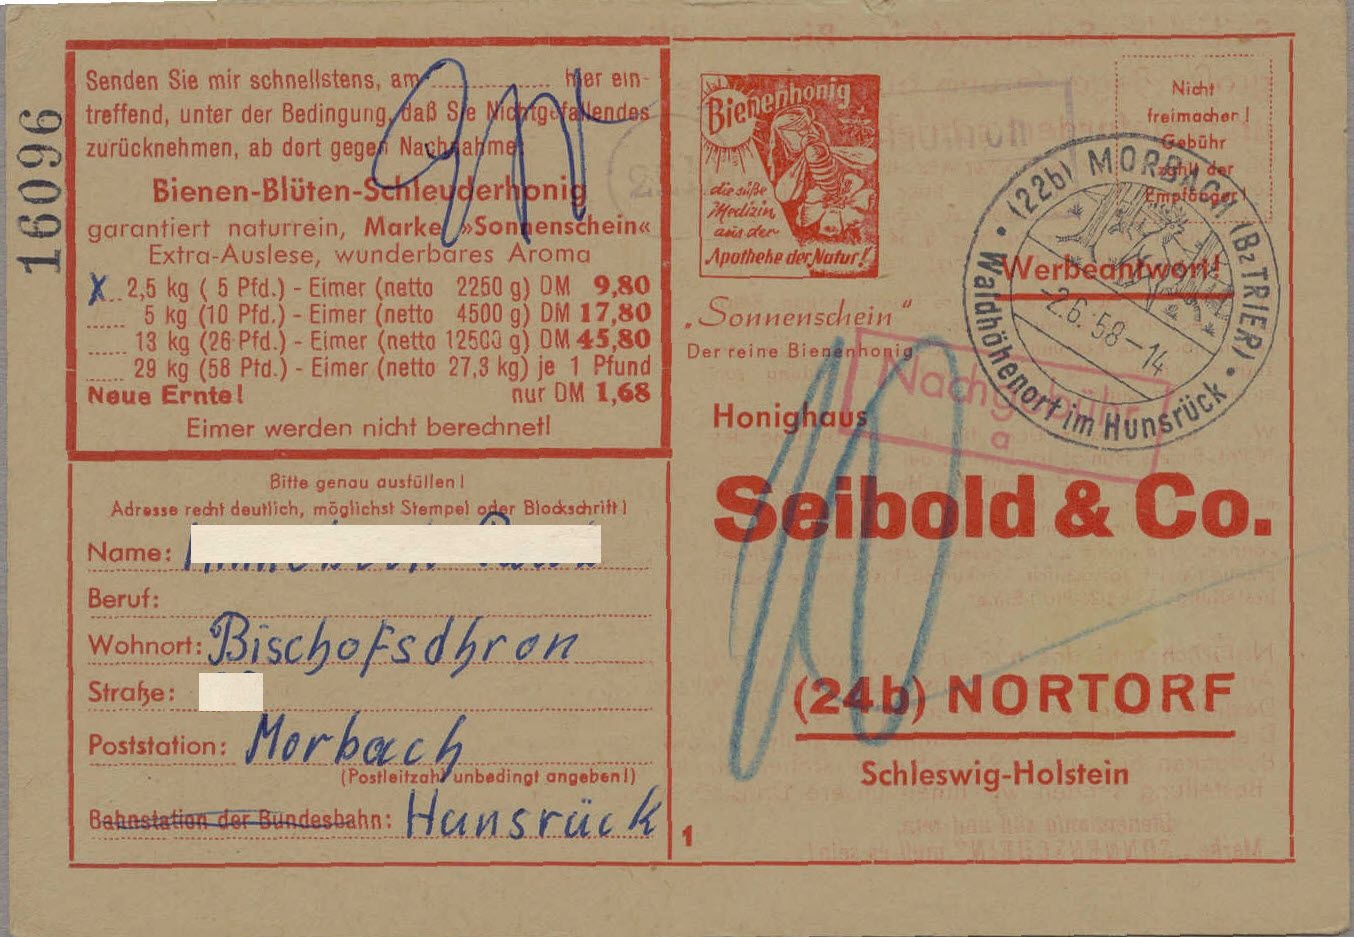 16096
Senden Sie mir schnellstens, am ............... hier ein-
treffend, unter der Bedingung, daß Sie Nichtgefallendes
zurücknehmen, ab dort gegen Nachnahme:
Bienen-Blüten-Schleuderhonig
garantiert naturrein, Marke »Sonnenschein«
Extra-Auslese, wunderbares Aroma
X 2,5 kg ( 5 Pfd.) - Eimer (netto 2250 g) DM 9,80
..... 5 kg (10 Pfd.) - Eimer (netto 4500 g) DM 17,80
..... 13 kg (26 Pfd.) - Eimer (netto 12500 g) DM 45,80
..... 29 kg (58 Pfd.) - Eimer (netto 27,3 kg) je 1 Pfund
Neue Ernte! nur DM 1,68
Eimer werden nicht berechnet!
Bitte genau ausfüllen!
Adresse recht deutlich, möglichst Stempel oder Blockschrift!
Name:
Beruf:
Wohnort: Bischofsdhron
Straße:
Poststation: Morbach
(Postleitzahl unbedingt angeben!)
Bahnstation der Bundesbahn: Hunsrück
Bienenhonig
die süße
Medizin
aus der
Apotheke der Natur!
„Sonnenschein"
Der reine Bienenhonig
Nicht
freimachen!
Gebühr
zahlt der
Empfänger
(22b) MORBACH (Bz TRIER)
Waldhöhenort im Hunsrück
-2.6.58-14
Werbeantwort!
Nachgebühr
a
10
Honighaus
Seibold & Co.
(24b) NORTORF
Schleswig-Holstein
1